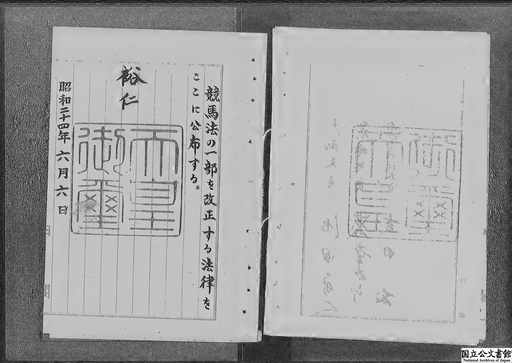 競馬法の一部を改正する法律を
ここに公布する。
裕仁
天皇御璽
昭和二十四年六月六日
国立公文書館
National Archives of Japan